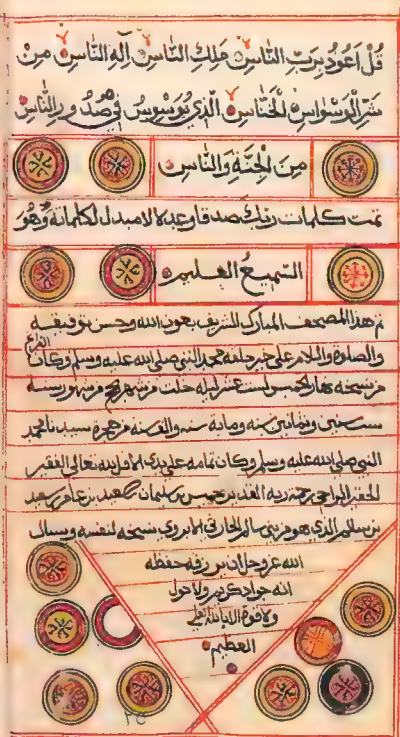 قُلْ اَعُوذُ بِرَبِّ النَّاسِ مَلِكِ النَّاسِ اِلٰهِ النَّاسِ مِنْ
شَرِّ الْوَسْوَاسِ الْخَنَّاسِ الَّذِي يُوَسْوِسُ فِي صُدُورِ النَّاسِ
مِنَ الْجِنَّةِ وَالنَّاسِ
تمت كلمات ربك صدقا وعدلا لا مبدل لكلماته وهو
السَّمِيعُ الْعَلِيمُ
تم هذا المصحف المبارك الشريف بعون الله وحسن توفيقه
والصلوة والسلام على خير خلقه محمد النبي صلى الله عليه وسلم وكان الفراغ
من نسخه نهار الخميس لست عشر ليلة خلت من شهر من شهور سنة
ست سنين وثمانين سنة ومائة سنة والف سنة من هجرة سيدنا محمد
النبي صلى الله عليه وسلم وكان تمامه على يدي الاقل لله تعالى الفقير
الحقير الراجي رحمة ربه القدير خميس بن سليمان بن سعيد بن عامر بن سعيد
بن سالم الذي هو من بني سالم نسخه لنفسه ويسال
الله عز وجل ان يرزقه حفظه
انه جواد كريم ولا حول
ولا قوة الا بالله العلي
العظيم